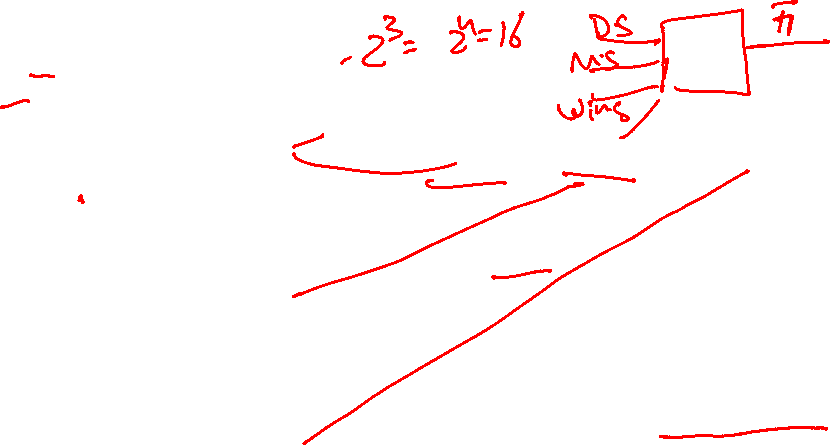 2³= 2⁴=16
DS
NS
Wins